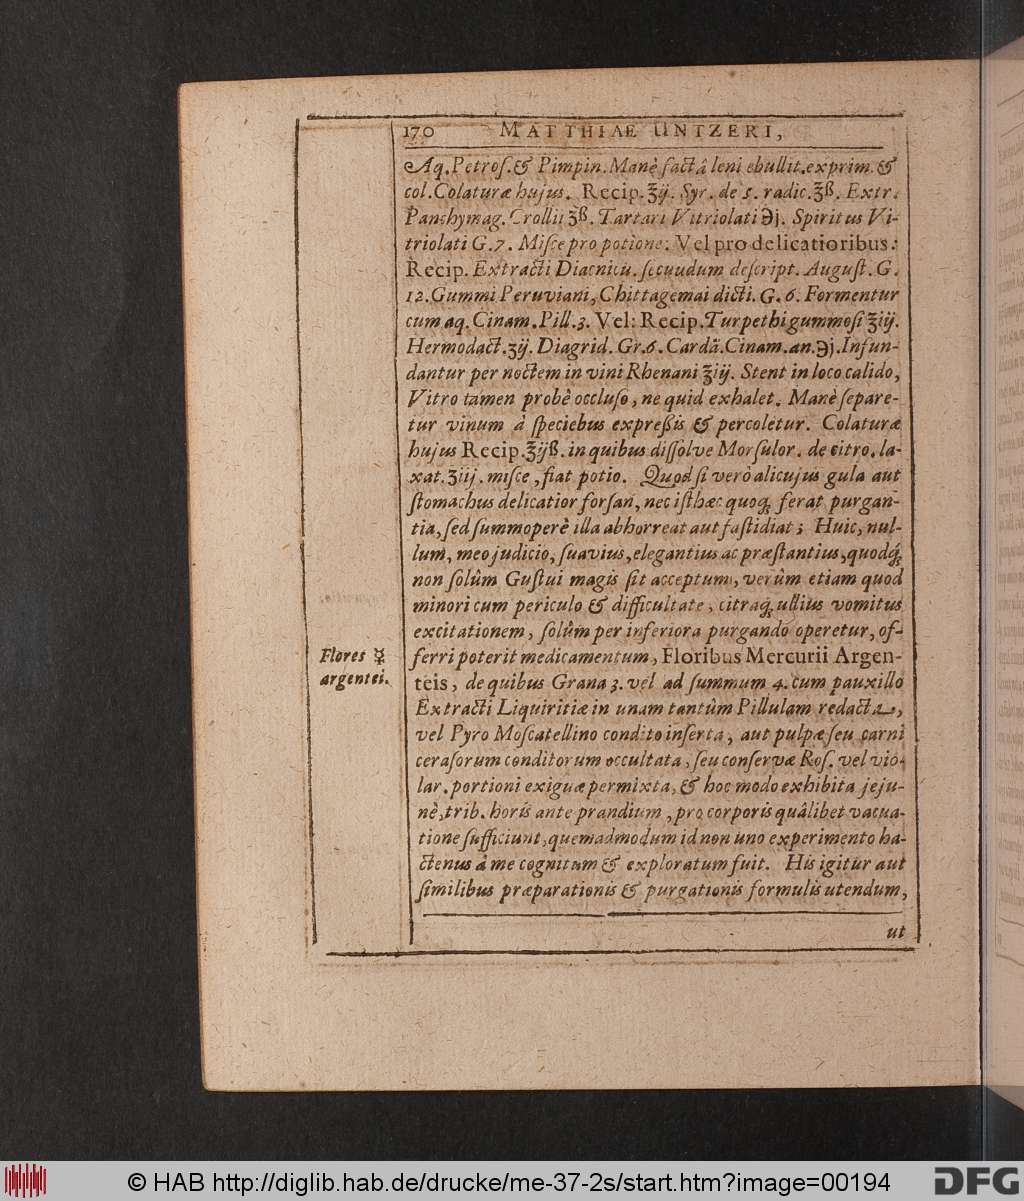 170 MATTHIAE UNTZERI,
Aq. Petros. & Pimpin. Manè factâ leni ebullit. exprim. &
col. Colaturæ hujus. Recip. ℥ij. Syr. de 5. radic. ℥ß. Extr.
Panchymag. Crollii ʒß. Tartari Vitriolati ℈j. Spiritus Vi-
triolati G. 7. Misce pro potione. Vel pro delicatioribus:
Recip. Extracti Diacnicū. secuudum descript. August. G.
12. Gummi Peruviani, Chittagemai dicti. G. 6. Formentur
cum aq. Cinam. Pill. 3. Vel: Recip. Turpethi gummosi ʒiij.
Hermodact. ʒij. Diagrid. Gr. 6. Cardā. Cinam. an. ℈j. Infun-
dantur per noctem in vini Rhenani ℥iij. Stent in loco calido,
Vitro tamen probè occluso, ne quid exhalet. Manè separe-
tur vinum à speciebus expreßis & percoletur. Colaturæ
hujus Recip. ℥ijß. in quibus dissolve Morsulor. de citro. la-
xat. ʒiij. misce, fiat potio. Quod si verò alicujus gula aut
stomachus delicatior forsan, nec isthæc quoq; ferat purgan-
tia, sed summoperè illa abhorreat aut fastidiat; Huic, nul-
lum, meo judicio, suavius, elegantius ac præstantius, quodq;
non solùm Gustui magis sit acceptum, verùm etiam quod
minori cum periculo & difficultate, citraq; ullius vomitus
excitationem, solùm per inferiora purgando operetur, of-
ferri poterit medicamentum, Floribus Mercurii Argen-
teis, de quibus Grana 3. vel ad summum 4. cum pauxillo
Extracti Liquiritiæ in unam tantùm Pillulam redacta,
vel Pyro Moscatellino condito inserta, aut pulpæ seu carni
cerasorum conditorum occultata, seu conservæ Ros. vel vio-
lar. portioni exiguæ permixta, & hoc modo exhibita jeju-
nè, trib. horis ante prandium, pro corporis quâlibet vacua-
tione sufficiunt, quemadmodum id non uno experimento ha-
ctenus à me cognitum & exploratum fuit. His igitur aut
similibus præparationis & purgationis formulis utendum,
ut
Flores ☿
argentei.
© HAB http://diglib.hab.de/drucke/me-37-2s/start.htm?image=00194
DFG